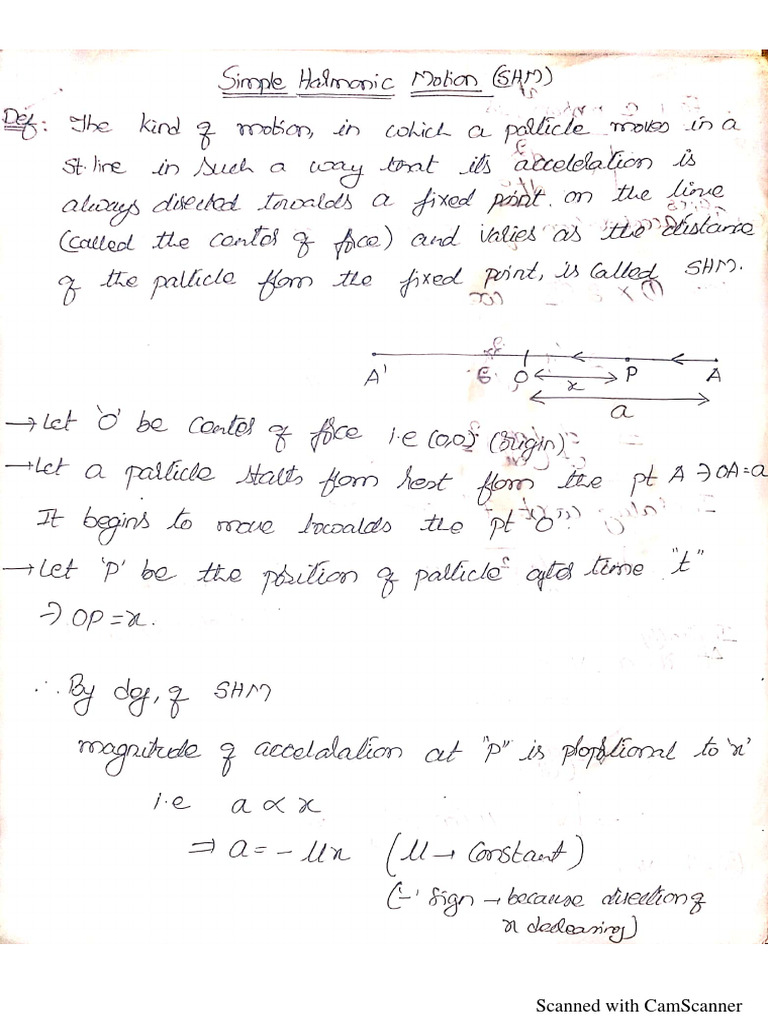 Simple Harmonic Motion (SHM)
Def: The kind of motion, in which a particle moves in a
st. line in such a way that its acceleration is
always directed towards a fixed point on the line
(called the center of force) and varies as the distance
of the particle from the fixed point, is called SHM.
A' O x P A
a
→ Let 'O' be center of force i.e (0,0) (origin)
→ Let a particle starts from rest from the pt A ⇒ OA=a
It begins to move towards the pt 'O'.
→ Let 'P' be the position of particle after time "t"
⇒ OP = x.
∴ By def, of SHM
magnitude of acceleration at "P" is proportional to 'x'
i.e a ∝ x
⇒ a = - μx (μ → constant)
('-' sign → because direction of
x decreasing)
Scanned with CamScanner